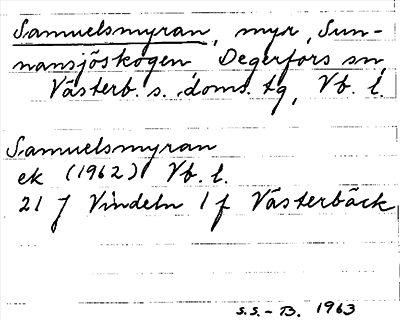 Samuelsmyran, myr, Sun-
nansjöskogen, Degerfors sn,
Västerb. s. doms. tg, Vb. l.
Samuelsmyran
ek (1962) Vb. l.
21 J Vindeln 1 f Västerbäck
S.S.-B. 1963